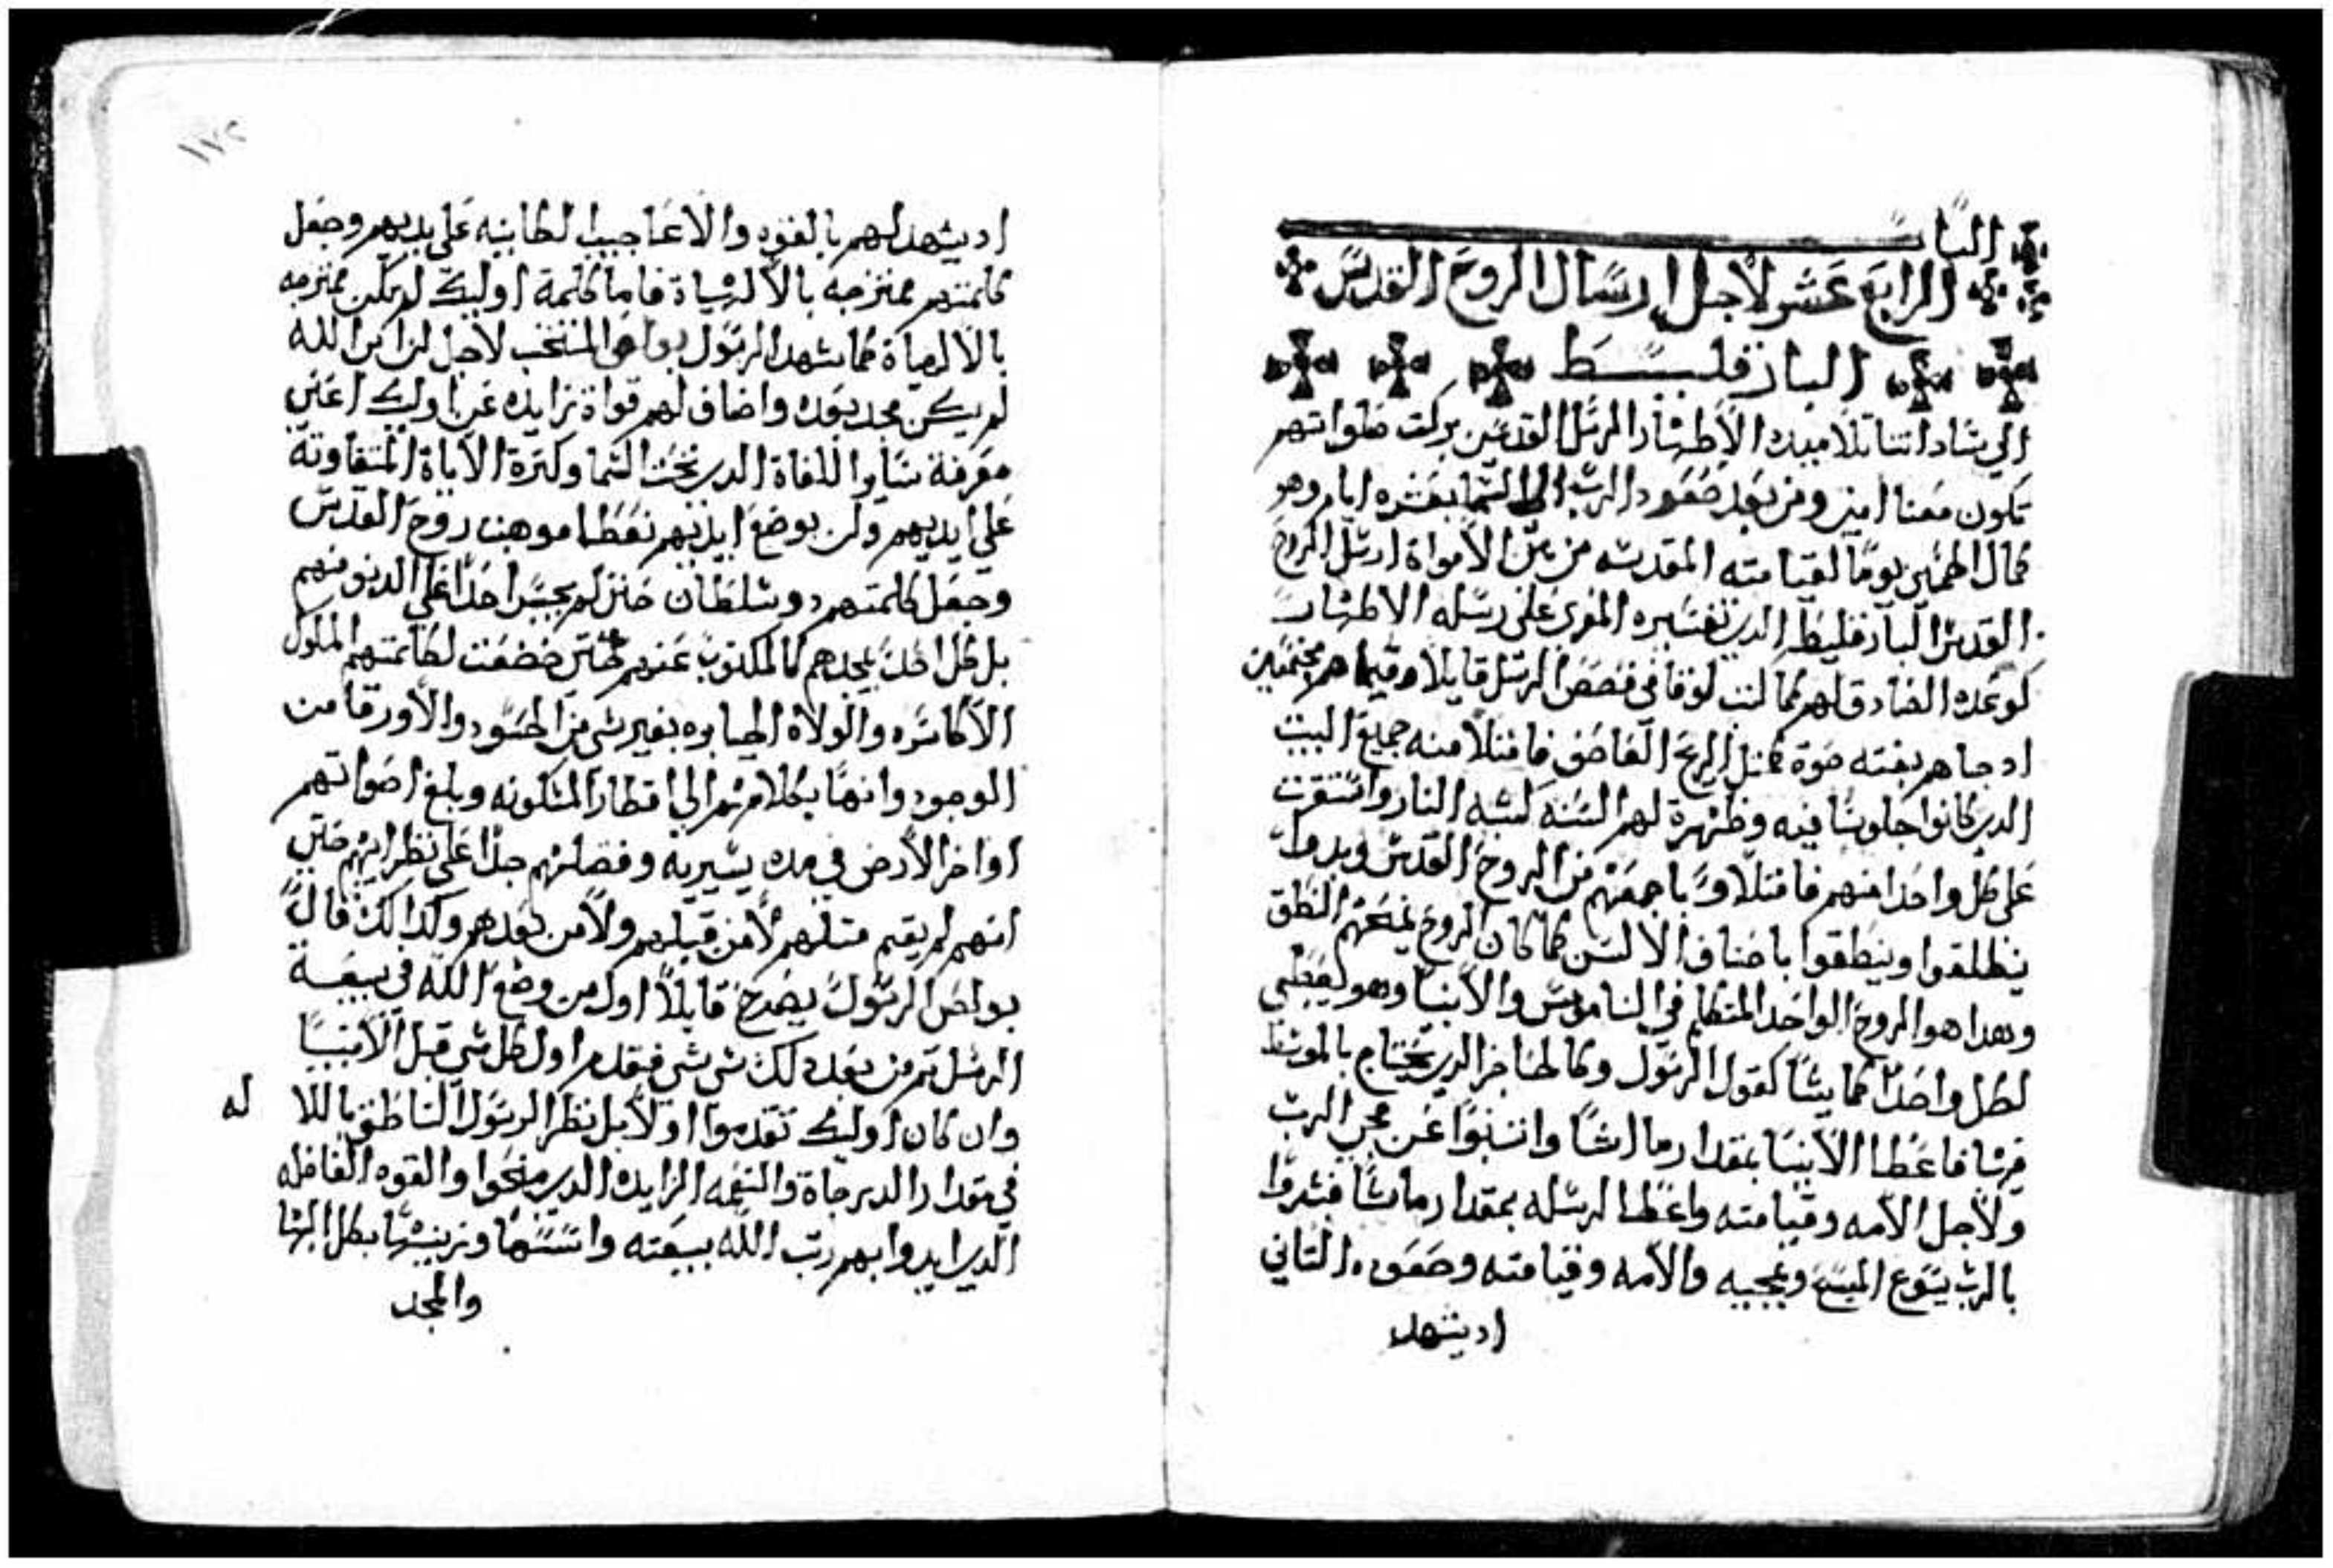 الباب
الرابع عشر لاجل ارسال الروح القدس
البارقليط
الي ساداتنا تلاميده الاطهار الرسل القدسين بركت صلواتهم
تكون معنا امين ومن بعد صعود الرب الي السما بعشره ايام وهو
كمال الخمسين يوما لقيامته المقدسه من بين الامواة ارسل الروح
القدس البارقليط الدي تفسيره المعزي علي رسله الاطهار
كوعده الصادق لهم كما كتب لوقا في قصص الرسل قايلا وفيما هم مجتمعين
ادجاهم بغته صوة كمثل الريح العاصف فامتلا منه جميع البيت
الدي كانوا جلوسا فيه وظهرة لهم السنه كشبه النار واستقرت
علي كل واحدا منهم فامتلاوا باجمعهم من الروح القدس وبدوا
ينطلقوا وينطقوا باصناف الالسن كما كان الروح يمنحهم النطق
وهدا هو الروح الواحد المتكلم في الناموس والانبيا وهو يعطي
لكل واحدا كما يشا كقول الرسول وكالخاجز الدي يختام بالموسط
فرشا فاعطا الانبيا بمقدار ما اشا وانتبوا عن مجي الرب
ولاجل الامه وقيامته واعطا لرسله بمقدار ماشا فبشروا
بالرب يسوع المسيح وبمجيه والامه وقيامته وصعوده التاني
اديشهد
١٧٢
اديشهد لهم بالقوه والاعاجيب الكاينه علي يديهم وجعل
كلمتهم ممتزجه بالالهياة فاما كلمة اوليك لم تكن ممتزجه
بالالهياة كما شهد الرسول بولص المنتخب لاجل لن ابن الله
لم يكن مجد بعده واضاف لهم قواة تزايده عن اوليك اعني
معرفة سايرا اللغاة الدي تحت السما وكترة الاياة المتفاوتة
علي ايديهم ولن بوضع ايديهم تعطا موهبت روح القدس
وجعل كلمتهم دو سلطان حتي لم يجسر احدا علي الدنو منهم
بل كل احدا يمجدهم كالمكتوب عنهم حتي خضعت لكلمتهم الملوك
الاكاسره والولاة الجبابره بغير شي من الجنود والاورقا من
الوجود وانها بكلامهم الي اقطار المسكونه وبلغ اصواتهم
اواخر الارض في مده يسيريه وفضلهم جدا علي نظرايهم حتي
انهم لم يقيم متلهم لا من قبلهم ولا من بعدهم وكدالك قال
بولص الرسول يصرخ قايلا اول من وضع الله في بيعة
الرسل تم من بعد دلك شي شي فقدم اول كل شي قبل الانبيا
وان كان اوليك تقدموا اولا بل نظر الرسول الناطق باللا له
في مقدار الدرجاة والنعمه الزايده الدي منحوا والقوه الفاضله
الدي ايدوا بهم رتب الله بيعته واسسها وزينها بكل البها
والمجد